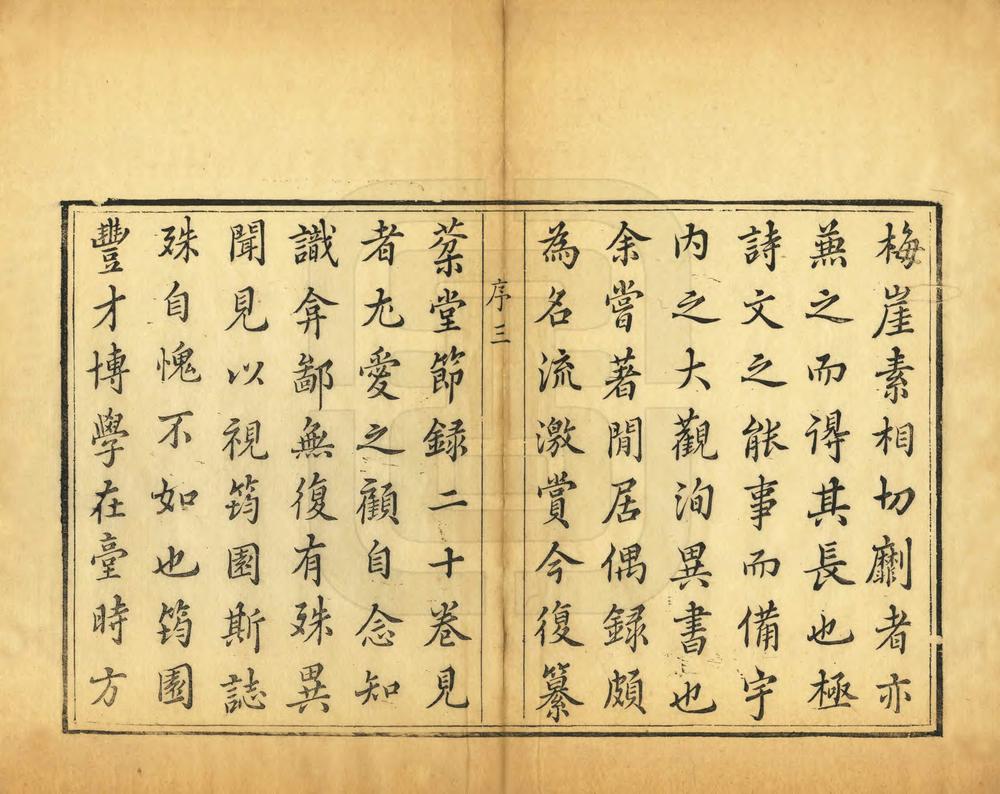 梅崖素相切劘者亦
蕪之而得其長也極
詩文之能事而備宇
内之大觀洵異書也
余嘗著閒居偶録頗
為名流激賞今復纂
序三
菜堂節録二十卷見
者尤愛之顧自念知
識弇鄙無復有殊異
聞見以視筠園斯誌
殊自愧不如也筠園
豐才博學在臺時方